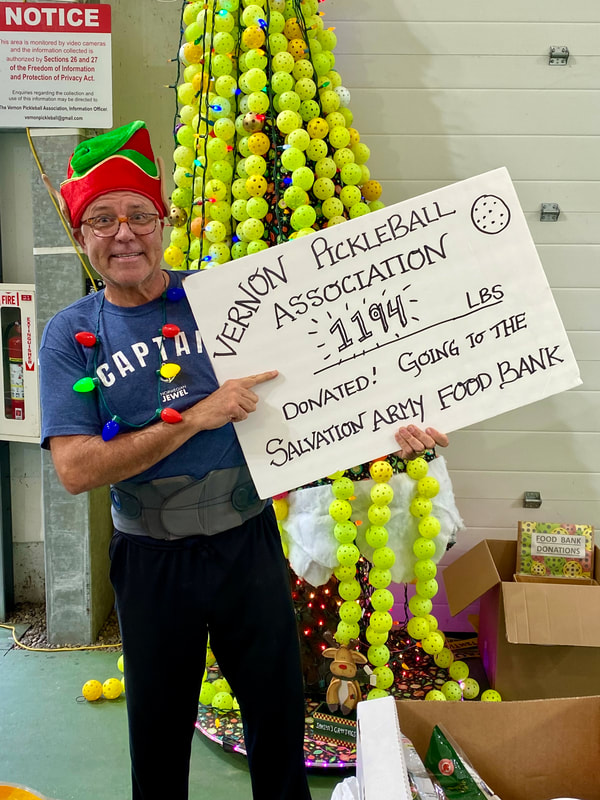 NOTICE
This area is monitored by video cameras
and the information collected is
authorized by Sections 26 and 27
of the Freedom of Information
and Protection of Privacy Act.
Enquiries regarding the collection and
use of this information may be directed to
The Vernon Pickleball Association, Information Officer
vernonpickleball@gmail.com
FIRE
EXTINGUISHER
CAPTAI
JEWEL
VERNON PICKLEBALL
ASSOCIATION
1194 LBS
DONATED! GOING TO THE
SALVATION ARMY FOOD BANK
FOOD BANK
DONATIONS